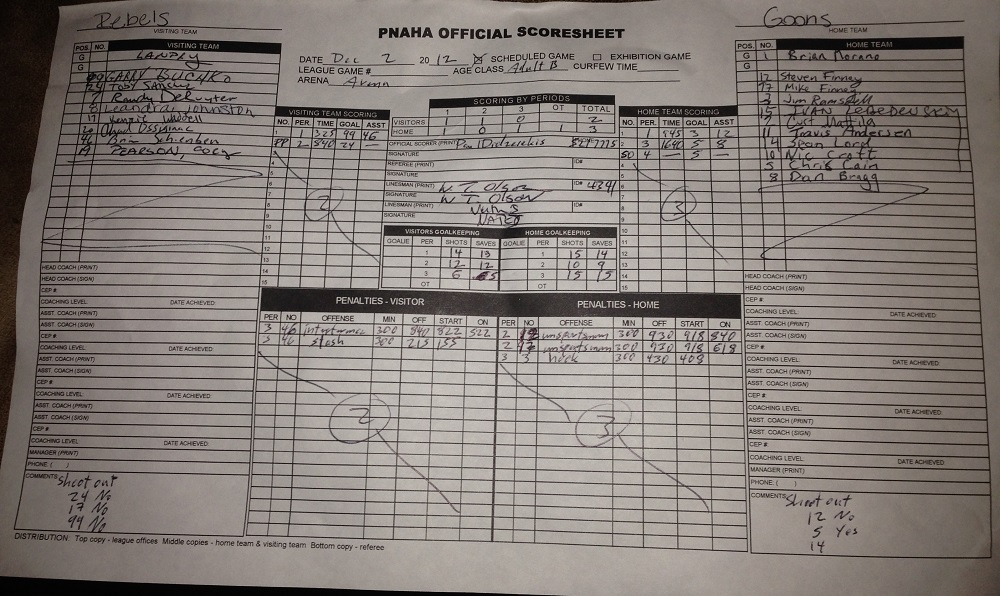 Rebels
VISITING TEAM
Goons
HOME TEAM
PNAHA OFFICIAL SCORESHEET
DATE Dec 2 2012 X SCHEDULED GAME EXHIBITION GAME
LEAGUE GAME # AGE CLASS Adult B CURFEW TIME
ARENA Arena
POS. NO. VISITING TEAM
G LANDRY
G
99 GARRY BUCHKO
24 TOBY
Randy DeRuyter
8 Leandra Johnston
17 Kenzie Waddell
20 Chad
46 Brian
19 PEARSON, CORY
HEAD COACH (PRINT)
HEAD COACH (SIGN)
CEP #
COACHING LEVEL DATE ACHIEVED
ASST. COACH (PRINT)
ASST. COACH (SIGN)
CEP #
COACHING LEVEL DATE ACHIEVED
ASST. COACH (PRINT)
ASST. COACH (SIGN)
CEP #
COACHING LEVEL DATE ACHIEVED
ASST. COACH (PRINT)
ASST. COACH (SIGN)
CEP #
COACHING LEVEL DATE ACHIEVED
MANAGER (PRINT)
PHONE ( )
COMMENTS Shoot out
24 No
17 No
99 No
VISITING TEAM SCORING
NO. PER. TIME GOAL ASST
1 1 325 99 46
PP 2 840 24 —
2
SCORING BY PERIODS
1 2 3 OT TOTAL
VISITORS 1 1 0 2
HOME 1 0 1 1 3
OFFICIAL SCORER (PRINT)
SIGNATURE
REFEREE (PRINT) ID#
SIGNATURE
LINESMAN (PRINT) W. T. Olson ID# 4341
SIGNATURE W T Olson
LINESMAN (PRINT) ID#
SIGNATURE
VISITORS GOALKEEPING
GOALIE PER SHOTS SAVES
1 14 13
2 12 12
3 6 5
OT
HOME GOALKEEPING
GOALIE PER SHOTS SAVES
1 15 14
2 10 9
3 15 15
OT
HOME TEAM SCORING
NO. PER. TIME GOAL ASST
1 1 845 3 12
2 3 1640 5 8
SO 4 — 5 —
3
POS. NO. HOME TEAM
G 1 Brian Morano
G
12 Steven Finney
77 Mike Finney
3 Jim Ramsdell
15 EVAN
7 Curt Mattila
11 Travis Andersen
14 Sean Lord
10 Nic Crott
5 Chris Cain
8 Dan Bragg
HEAD COACH (PRINT)
HEAD COACH (SIGN)
CEP #
COACHING LEVEL DATE ACHIEVED
ASST. COACH (PRINT)
ASST. COACH (SIGN)
CEP #
COACHING LEVEL DATE ACHIEVED
ASST. COACH (PRINT)
ASST. COACH (SIGN)
CEP #
COACHING LEVEL DATE ACHIEVED
ASST. COACH (PRINT)
ASST. COACH (SIGN)
CEP #
COACHING LEVEL DATE ACHIEVED
MANAGER (PRINT)
PHONE: ( )
COMMENTS Shoot out
12 No
5 Yes
14
PENALTIES - VISITOR
PER NO OFFENSE MIN OFF START ON
3 46 interference 300 840 822 522
3 46 slash 300 215 155
2
PENALTIES - HOME
PER NO OFFENSE MIN OFF START ON
2 12 unsportsman 300 930 918 840
2 unsportsman 300 930 918 618
3 3 hook 300 430 408
3
DISTRIBUTION: Top copy - league offices Middle copies - home team & visiting team Bottom copy - referee